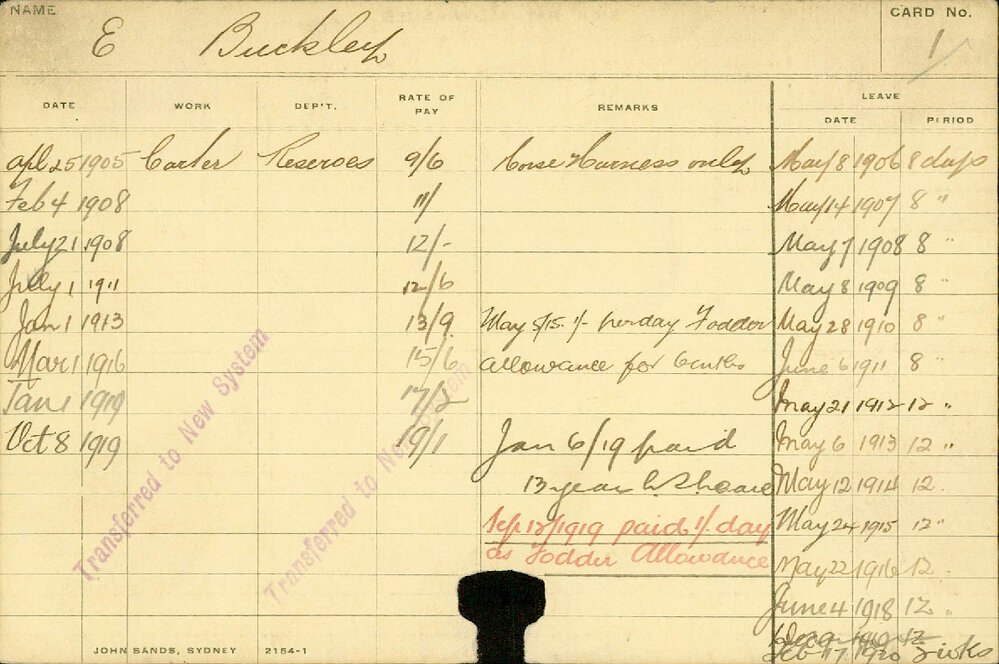 NAME E Buckley CARD No. 1
DATE WORK DEP'T. RATE OF PAY REMARKS LEAVE
DATE PERIOD
Apl 25 1905 Carter Reserves 9/6 Horse & Harness only May 8 1906 8 days
Feb 4 1908 11/ May 14 1907 8 "
July 21 1908 12/- May 7 1908 8 "
July 1 1911 12/6 May 8 1909 8 "
Jan 1 1913 13/9 May 5/15. 1/- per day Fodder May 28 1910 8 "
Mar 1 1916 15/6 allowance for 6 mths June 6 1911 8
Jan 1 1919 17/2 May 21 1912 12 "
Oct 8 1919 19/1 Jan 6/19 paid May 6 1913 12 "
13 year May 12 1914 12
Sep 12/1919 paid 1/ day May 24 1915 12 "
as Fodder Allowance May 22 1916 12
June 4 1918 12 "
1919 12
Feb 17 1920 2 wks
Transferred to New System
Transferred to New System
JOHN SANDS, SYDNEY 2154-1